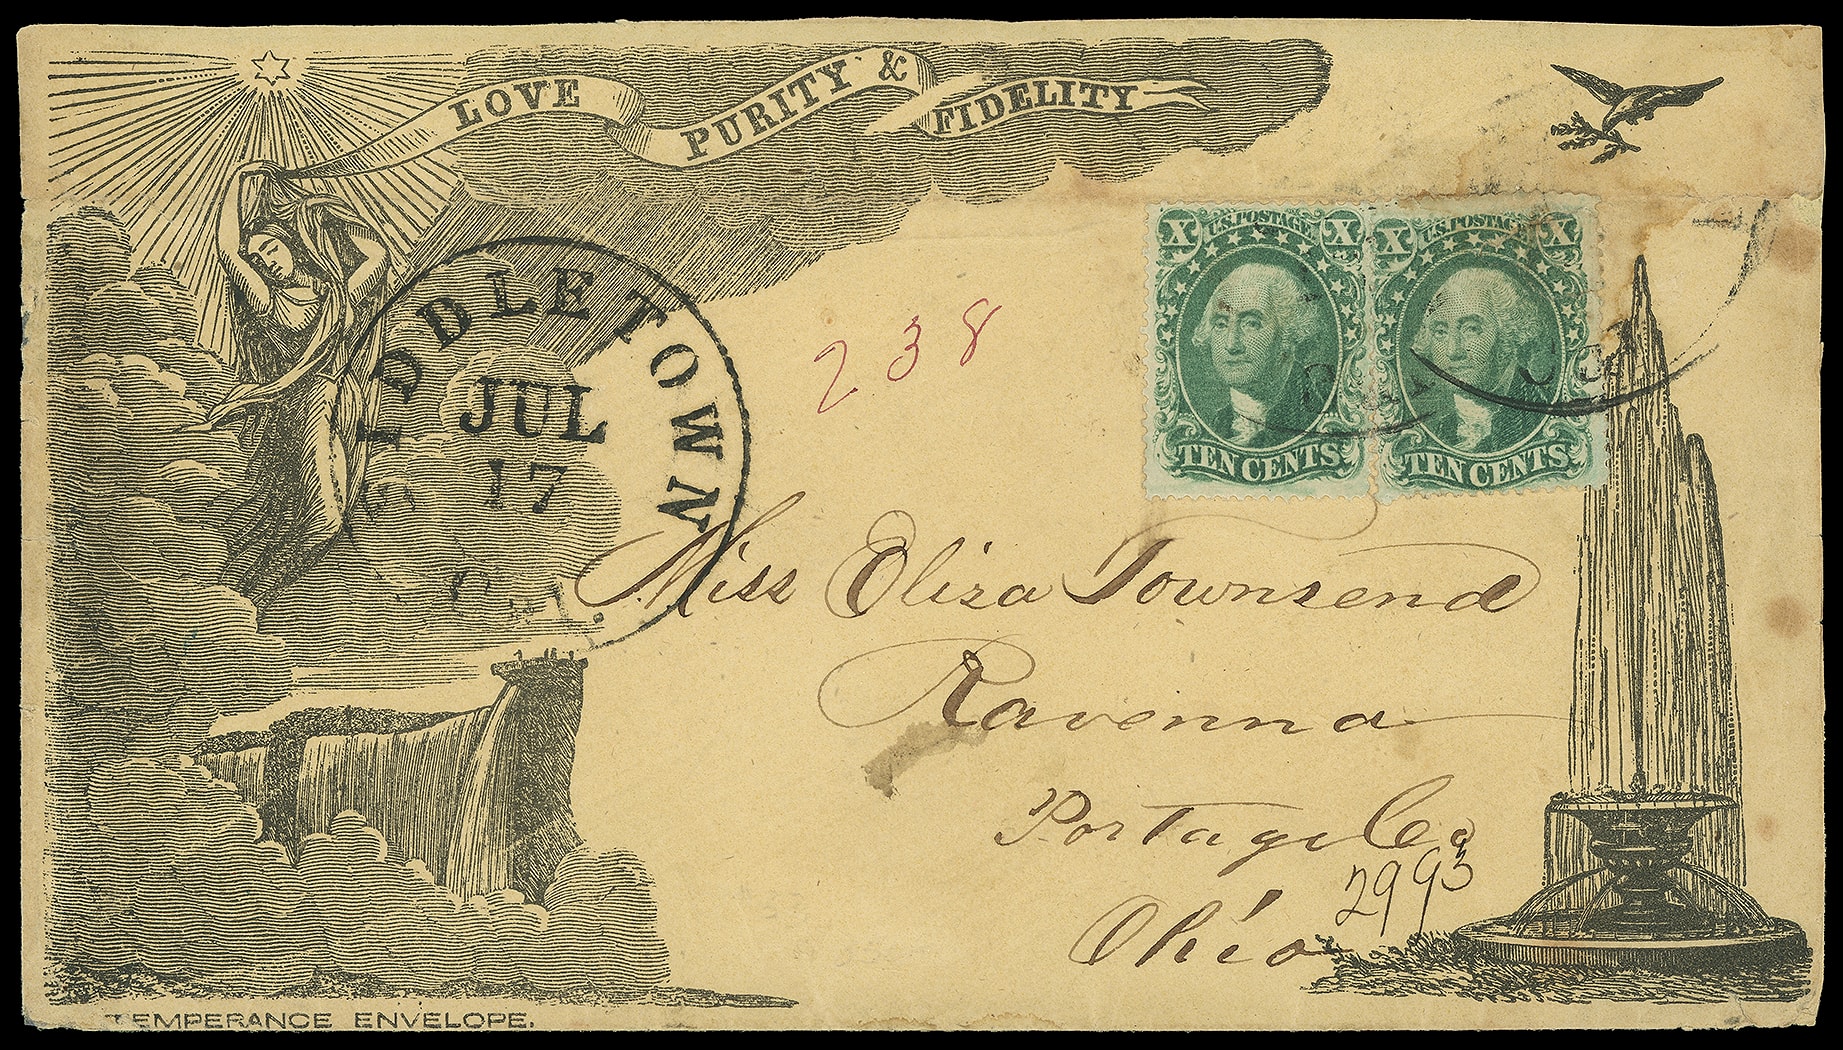 LOVE PURITY & FIDELITY
X U.S. POSTAGE X
TEN CENTS
X U.S. POSTAGE X
TEN CENTS
IDDLETOWN
JUL
17
Cal.
238
Miss Eliza Townsend
Ravenna
Portage Co
2993
Ohio
TEMPERANCE ENVELOPE.